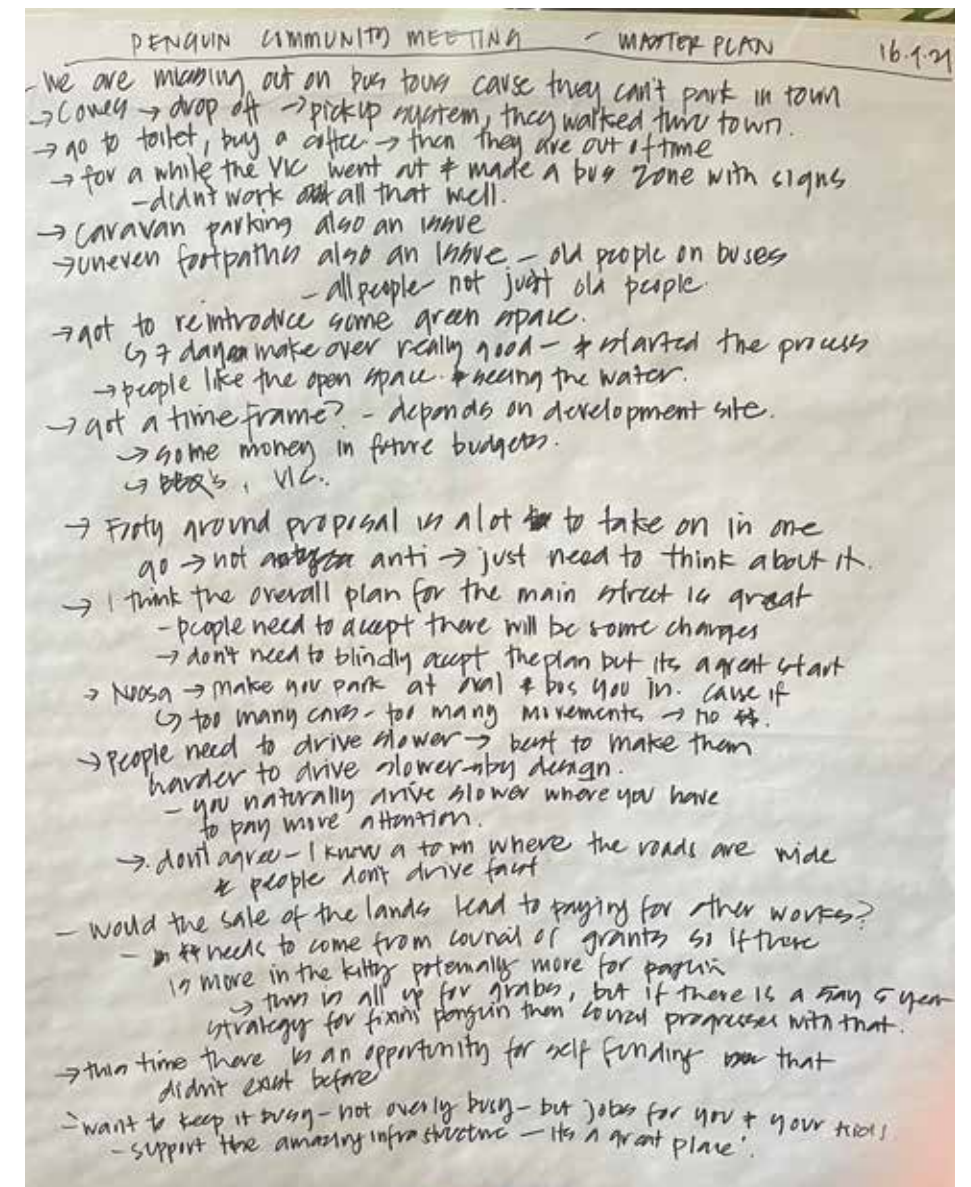 PENGUIN COMMUNITY MEETING - MASTER PLAN 16.9.21
- We are missing out on bus tours cause they can't park in town
→ → drop off → pickup system, they walked thru town.
→ go to toilet, buy a coffee → then they are out of time
→ for a while the VIC went out & made a bus zone with signs
- didn't work all that well.
→ caravan parking also an issue
→ uneven footpaths also an issue - old people on buses
- all people not just old people.
→ got to reintroduce some green space.
↳ 7 day make over really good - & started the process
→ people like the open space. & seeing the water.
→ got a time frame? - depends on development site.
→ some money in future budgets.
↳ BBQ's, VIC.
→ around proposal is a lot to take on in one
go → not anti → just need to think about it.
→ I think the overall plan for the main street is great
- people need to accept there will be some changes
→ don't need to blindly accept the plan but its a great start
→ Noosa → make you park at oval & bus you in. cause if
↳ too many cars - too many movements → no $$.
→ People need to drive slower → best to make them
harder to drive slower - by design.
- you naturally drive slower where you have
to pay more attention.
→ don't agree - I know a town where the roads are wide
& people don't drive fast
- would the sale of the lands lead to paying for other works?
- $$ needs to come from council or grants so if there
is more in the kitty potentially more for penguin
→ this is all up for grabs, but if there is a say 5 year
strategy for fixing penguin then council progresses with that.
→ this time there is an opportunity for self funding that
didn't exist before
- want to keep it busy - not overly busy - but jobs for you & your kids
- support the amazing infrastructure - its a great place.